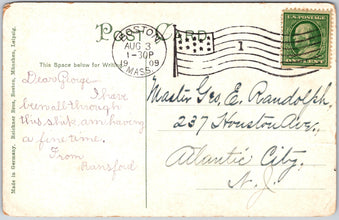 POST CARD.
BOSTON
AUG 3
1-30P
1909
MASS.
1
U.S. POSTAGE
ONE CENT
This Space below for Writing
Dear George
I have
been all through
this ship am having
a fine time.
From
Hansford
Master Geo. E. Randolph,
237 Houston Ave,
Atlantic City.
N.J.
Made in Germany. Reichner Bros., Boston, München, Leipzig.